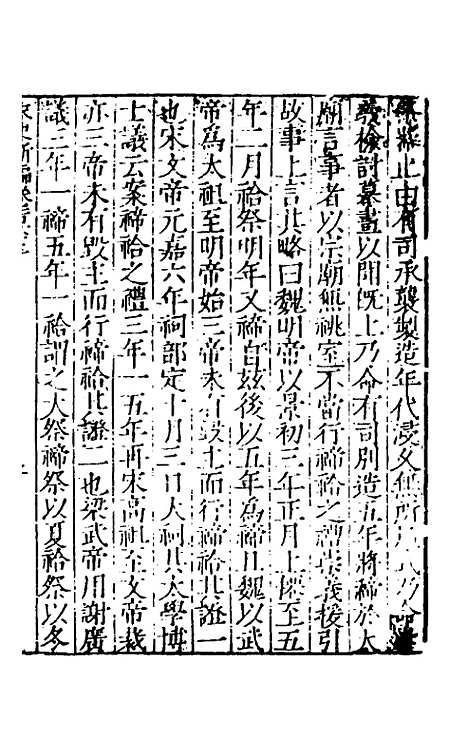 止由有司承襲製造年代浸久無所
檢討摹畫以聞既上乃命有司別造五年將禘於太
廟言事者以宗廟無祧室不當行禘祫之禮崇義援引
故事上言其略曰魏明帝以景初三年正月上僊至五
年二月祫祭明年又禘自茲後以五年爲禘且魏以武
帝爲太祖至明帝始三帝未有毀主而行禘祫其證一
也宋文帝元嘉六年祠部定十月三日大祠其太學博
士議云案禘祫之禮三年一五年再宋高祖至文帝裁
亦三帝未有毀主而行禘祫其證二也梁武帝用謝廣
議三年一禘五年一祫謂之大祭禘祭以夏祫祭以冬